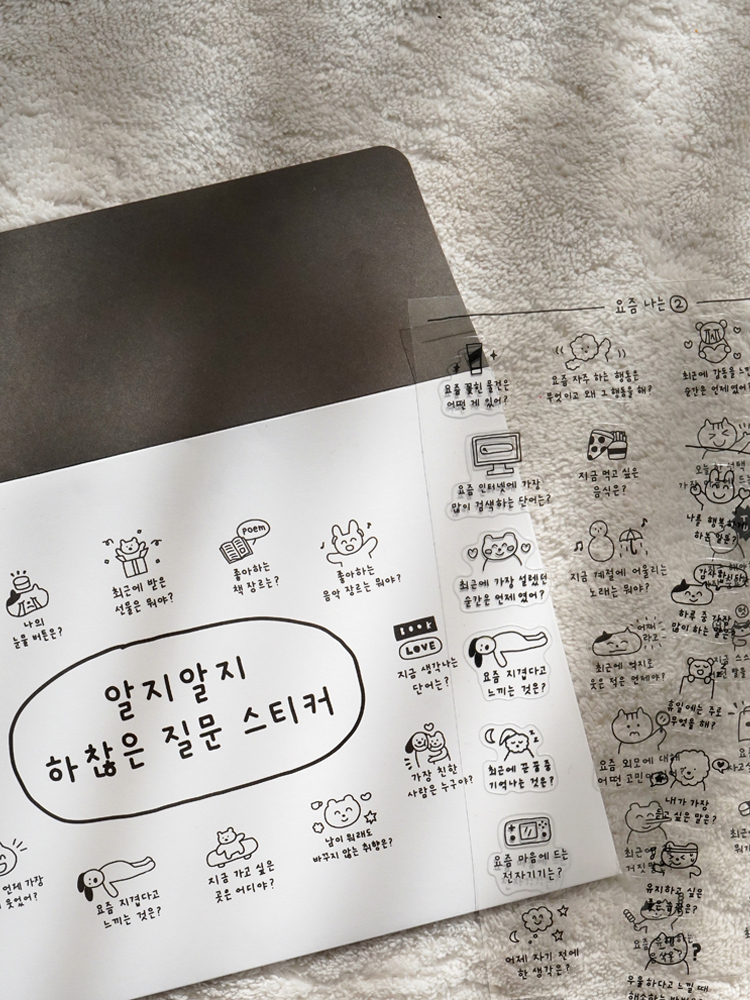 요즘 나는 ②
요즘 꽂힌 물건은
어떤 게 있어?
요즘 자주 하는 행동은
무엇이고 왜 그 행동을 해?
최근에 감동을
순간은 언제였어?
요즘 인터넷에 가장
많이 검색하는 단어는?
지금 먹고 싶은
음식은?
최근에 가장 설렜던
순간은 언제였어?
지금 계절에 어울리는
노래는 뭐야?
요즘 지겹다고
느끼는 것은?
최근에 억지로
웃은 적은 언제야?
최근에 꾼 꿈 중
기억나는 것은?
요즘 외모에 대해
어떤
요즘 마음에 드는
전자기기는?
언제 자기 전에
한 생각은?
나를 행복하게
하는
하루 중 가장
많이 하는
휴일에는 주로
무엇을 해?
내가 가장
싶은 말은?
유지하고 싶은
우울하다고 느낄 때
나의
눈물 버튼은?
최근에 받은
선물은 뭐야?
poem
좋아하는
책 장르는?
좋아하는
음악 장르는 뭐야?
BOOK
LOVE
지금 생각나는
단어는?
알지알지
하찮은 질문 스티커
가장 친한
사람은 누구야?
언제 가장
웃었어?
요즘 지겹다고
느끼는 것은?
지금 가고 싶은
곳은 어디야?
남이 뭐래도
바꾸지 않는 취향은?